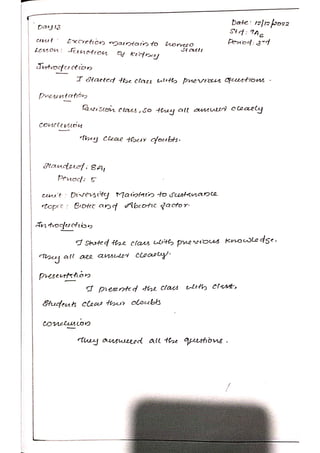 Day 13
Date: 12/12/2022
Std: 9A6
Period: 3rd
Unit: Excretion maintain to homeo
stasis
Lesson: Function of kidney
Introduction
I started the class with previous questions.
Presentation
Revision class, so they all answer clearly
Conclusion
They clear their doubts.
Standard: 8A1
Period: 5
Unit: Diversity Maintain to Sustenance
Topic: Biotic and Abiotic factor.
Introduction
I stated the class with previous knowledge.
They all are answer clearly.
Presentation
I presented the class with
Students clear their doubts
Conclusion
They answered all the questions.